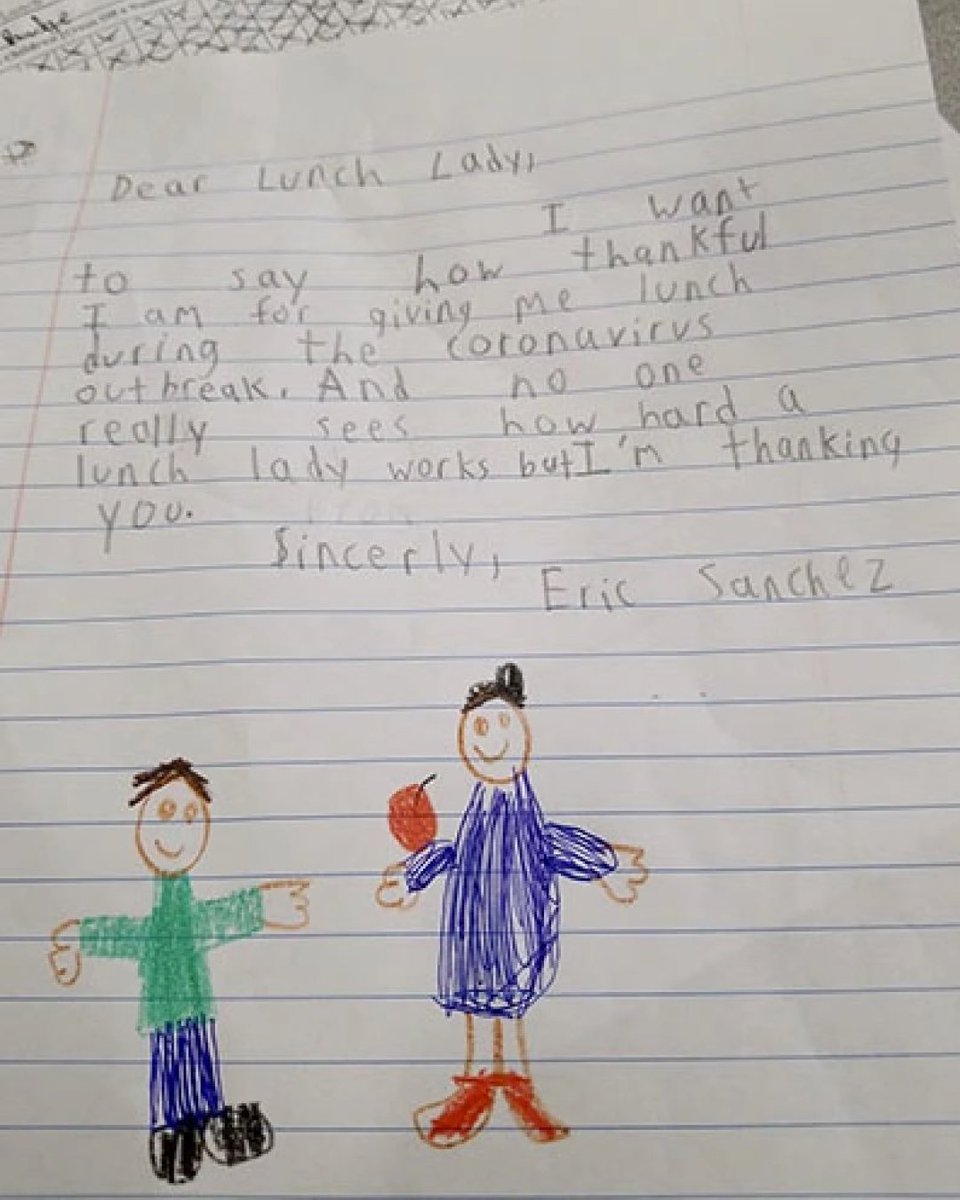 Dear Lunch Lady,
I want
to say how thankful
I am for giving me lunch
during the coronavirus
outbreak. And no one
really sees how hard a
lunch lady works but I'm thanking
you.
Sincerly,
Eric Sanchez